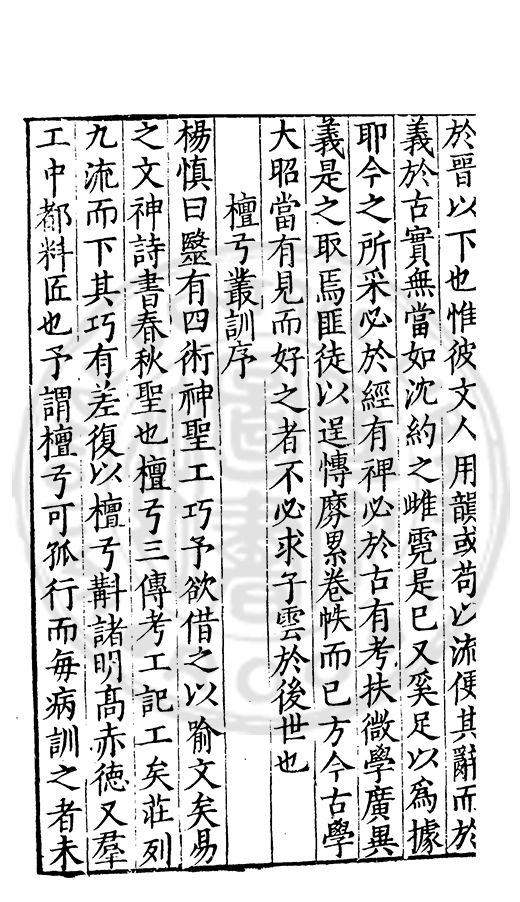 於晉以下也惟彼文人用韻或苟以流便其辭而於
義於古實無當如沈約之雌霓是已又奚足以爲據
耶今之所采必於經有裨必於古有考扶微學廣異
義是之取焉匪徒以逞慱靡累卷帙而已方今古學
大昭當有見而好之者不必求子雲於後世也
檀弓叢訓序
楊慎曰毉有四術神聖工巧予欲借之以喻文矣易
之文神詩書春秋聖也檀弓三傳考工記工矣莊列
九流而下其巧有差復以檀弓斠諸明髙赤徳又羣
工中都料匠也予謂檀弓可孤行而每病訓之者未